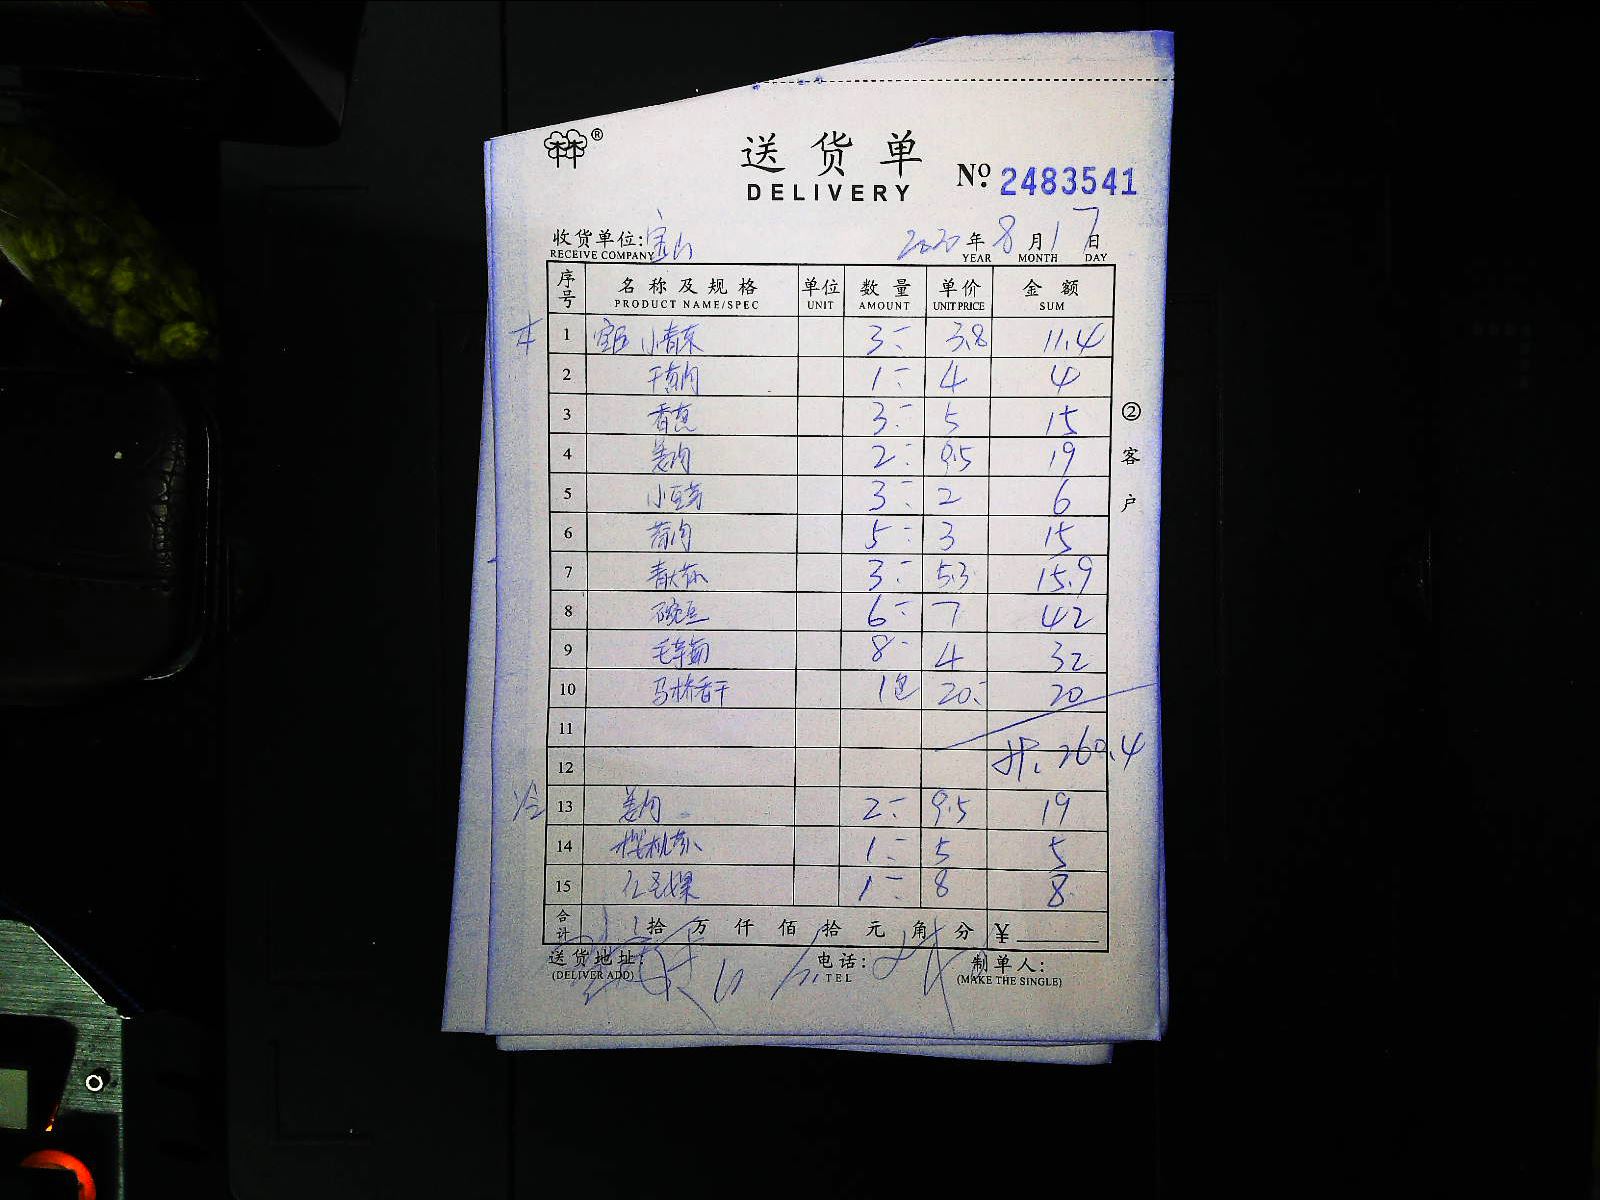 ®
送货单
DELIVERY
No. 2483541
收货单位: 宝山 2020年8月17日
RECEIVE COMPANY YEAR MONTH DAY
序号 名称及规格 单位 数量 单价 金额
PRODUCT NAME/SPEC UNIT AMOUNT UNIT PRICE SUM
1 小青菜 3 3.8 11.4
2 1 4 4
3 香葱 3 5 15
4 姜肉 2 9.5 19
5 小豆芽 3 2 6
6 5 3 15
7 3 5.3 15.9
8 豌豆 6 7 42
9 毛芋艿 8 4 32
10 马桥香干 1包 20 20
11
12 260.4
冷 13 姜肉 2 9.5 19
14 樱桃 1 5 5
15 1 8 8
合计 拾 万 仟 佰 拾 元 角 分 ¥
送货地址: 电话: 制单人:
(DELIVER ADD) TEL (MAKE THE SINGLE)
② 客户